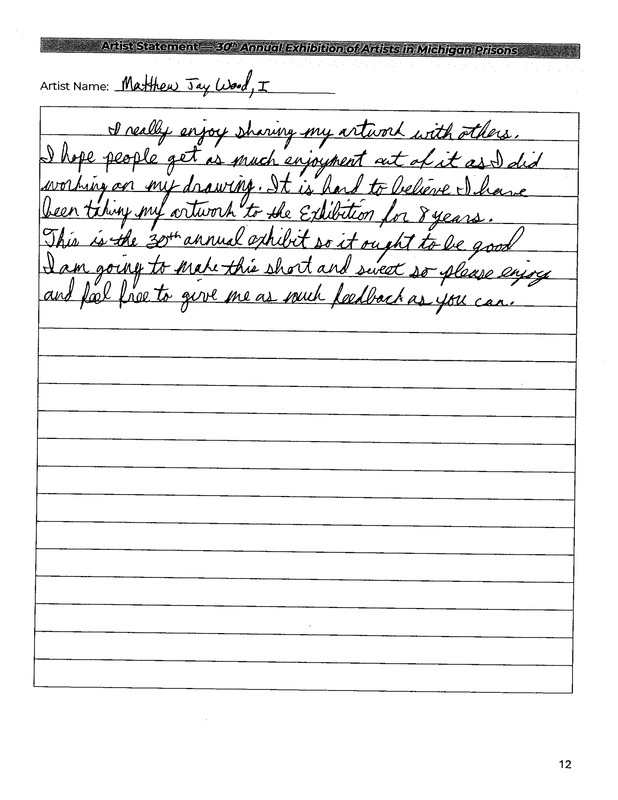 Artist Statement — 30th Annual Exhibition of Artists in Michigan Prisons
Artist Name: Matthew Jay Wood, I
I really enjoy sharing my artwork with others.
I hope people get as much enjoyment out of it as I did
working on my drawing. It is hard to believe I have
been taking my artwork to the Exhibition for 8 years.
This is the 30th annual exhibit so it ought to be good
I am going to make this short and sweet so please enjoy
and feel free to give me as much feedback as you can.
12